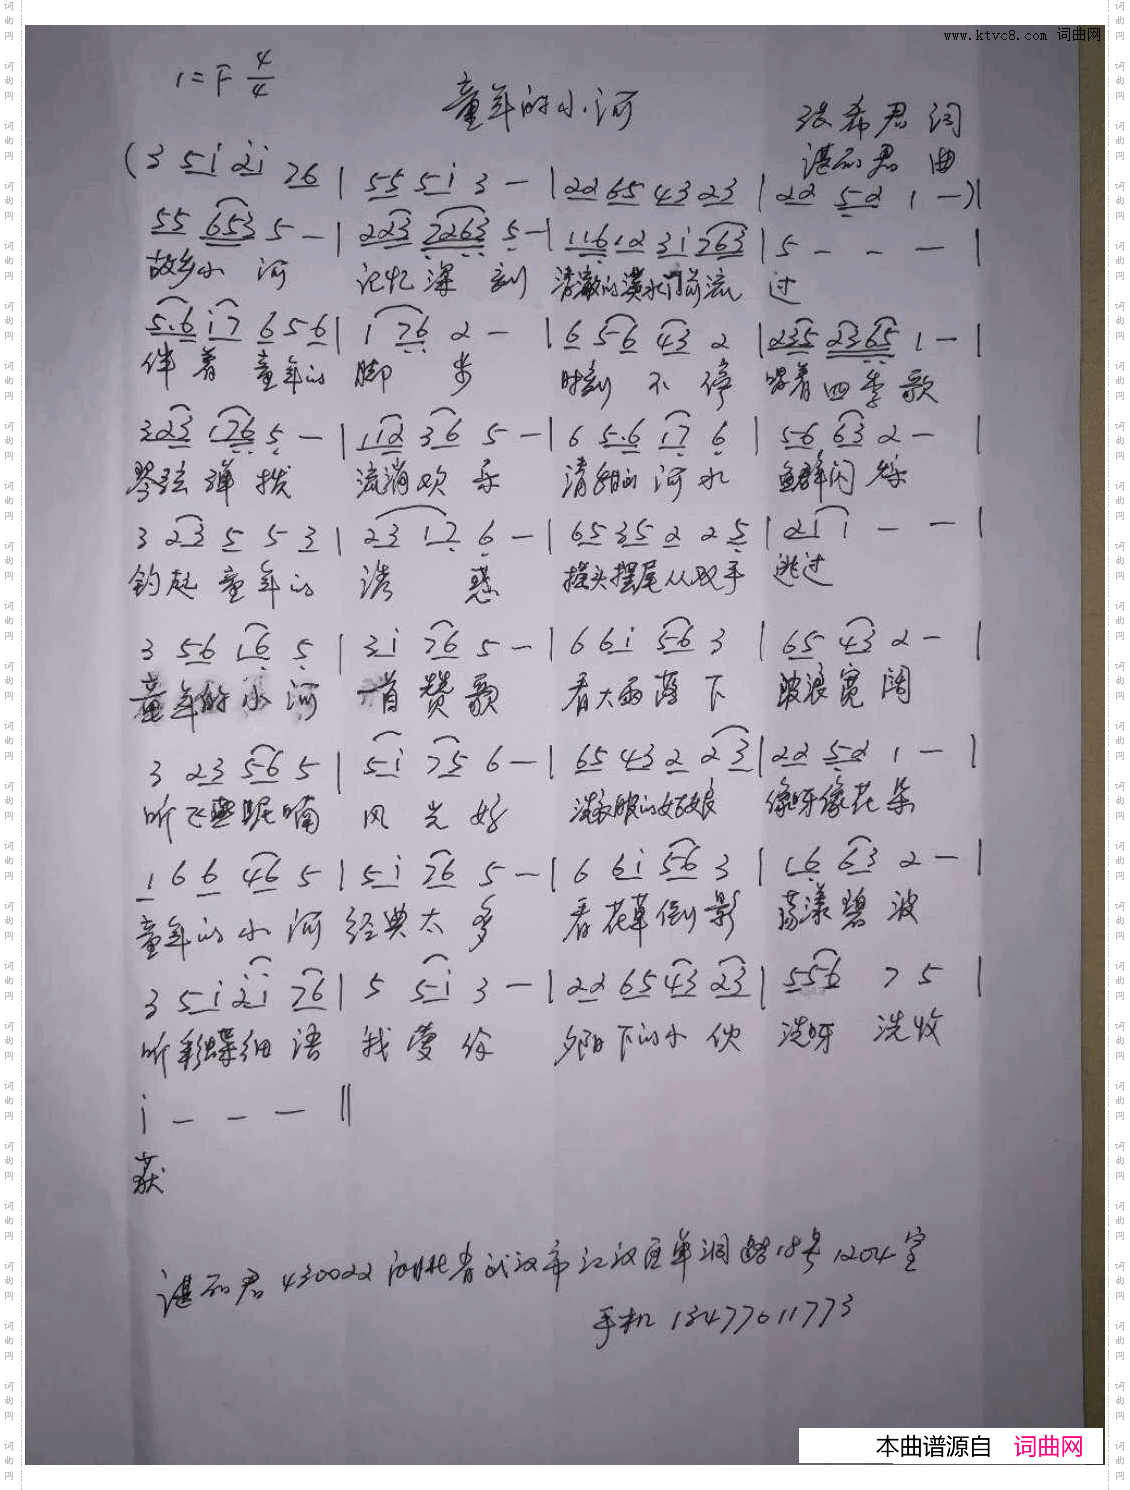 www.ktvc8.com 词曲网
1=F 4/4
童年的小河
张希君 词
谌 君 曲
(3 5i 2i 76 | 55 5i 3 - | 22 65 43 23 | 22 52 1 -)|
55 653 5 - | 223 7263 5 - | 11612 3i 763 | 5 - - - |
故乡小 河 记忆深 刻 清澈的溪水门前流 过
5.6 i7 6 5 6 | 1 76 2 - | 6 56 43 2 | 235 2365 1 - |
伴 着 童年的 脚 步 时刻 不 停 唱着四季歌
3 23 176 5 - | 112 36 5 - | 6 5.6 i7 6 | 56 63 2 - |
琴弦 弹 拨 流淌欢乐 清甜的 河 水 鱼群闪 烁
3 23 5 5 3 | 23 17 6 - | 65 35 2 2 5 | 21 1 - - |
钓起 童年的 诱 惑 摇头摆尾从双手 逃过
3 56 16 5 | 3i 76 5 - | 6 6i 56 3 | 65 43 2 - |
童年的小 河 一首赞歌 看大雨落 下 波浪宽阔
3 23 56 5 | 5i 75 6 - | 65 43 2 23 | 22 52 1 - |
听飞燕呢喃 风 光 好 洗衣服的好姑娘 像呀像花朵
1 6 6 46 5 | 5i 76 5 - | 6 6i 56 3 | 16 63 2 - |
童年的小 河 经典太 多 看花草倒影 荡漾碧 波
3 5i 2i 76 | 5 5i 3 - | 22 65 43 23 | 556 7 5 |
听彩蝶细 语 我爱你 夕阳下的小 伙 洗呀 洗收
i - - - ‖
获
谌 君 430022 湖北省武汉市江汉区单洞路18号1204室
手机 13477611773
本曲谱源自 词曲网